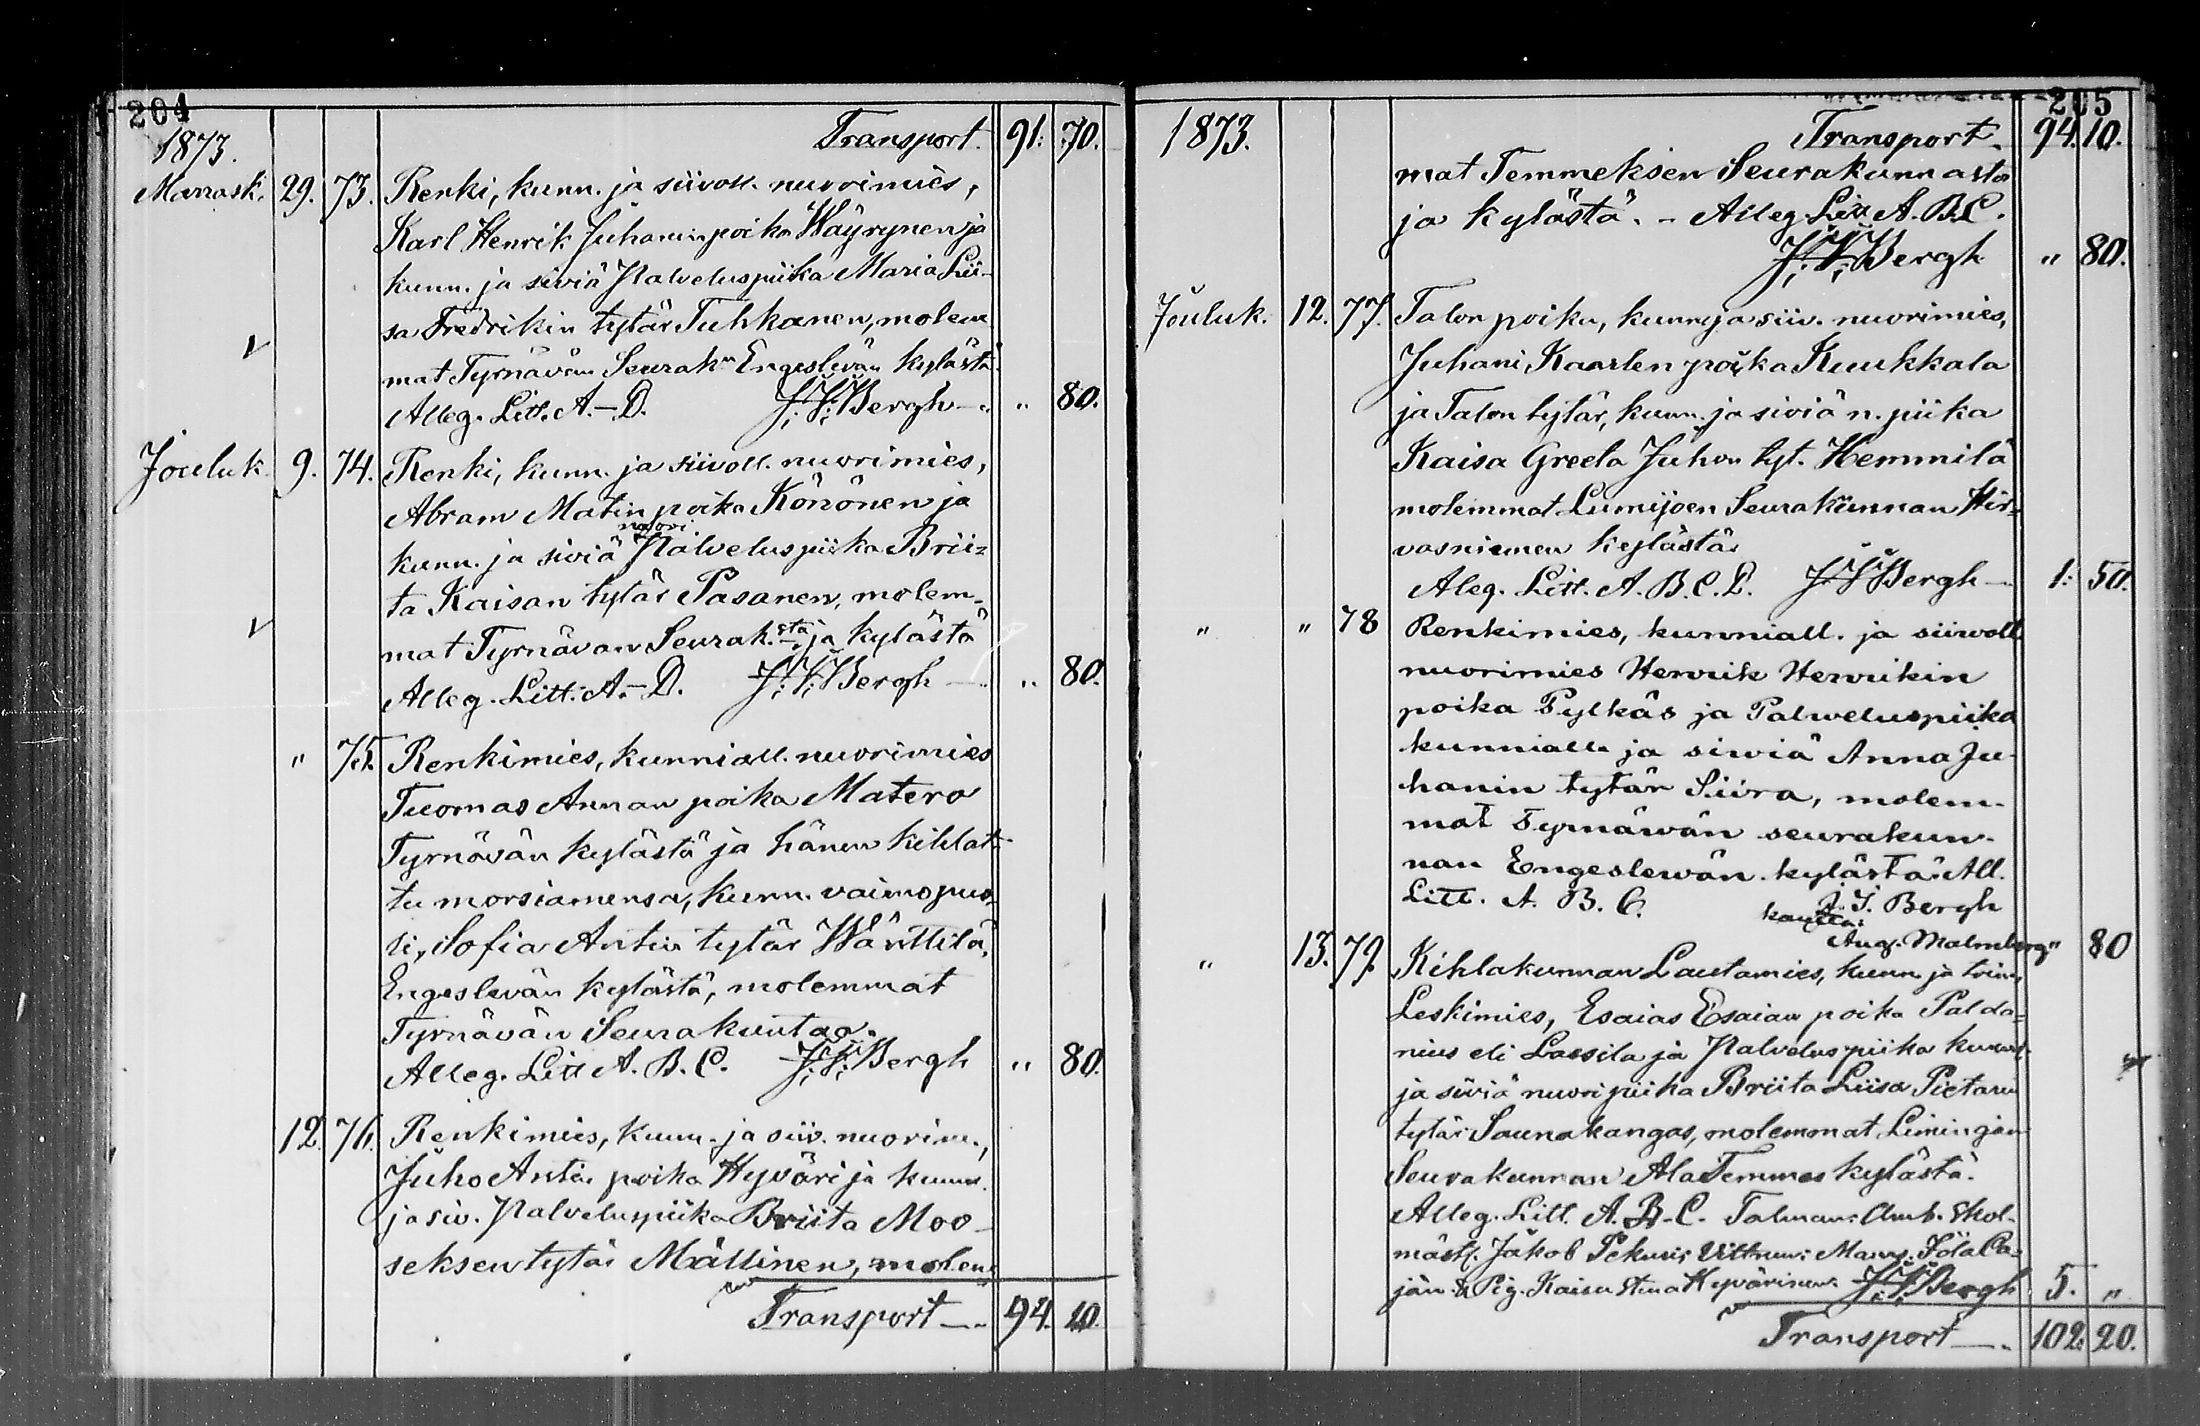 204
1873.
Transport. 91: 70.
Marrask. 29. 73. Renki, kunn. ja siivoll. nuorimies,
Karl Henrik Juhanin poika Wäyrynen ja
kunn. ja siviä Palveluspiika Maria Lii-
sa Fredrikin tytär Tuhkanen, molem
mat Tyrnävän Seurak:n Engeslevän kylästä
Alleg. Litt. A.-D. J. V. Bergh " 80.
Jouluk. 9. 74. Renki, kunn. ja siivoll. nuorimies,
Abram Matin poika Könönen ja
kunn. ja siviä nuori Palveluspiika Brii=
ta Kaisan tytär Pasanen, molem-
mat Tyrnävän Seurak.sta ja kylästä
Alleg. Litt: A.-D. J. V. Bergh " 80.
" 75. Renkimies, kunniall. nuorimies
Tuomas Annan poika Matero
Tyrnävän kylästä ja hänen kihlat-
tu morsiamensa, kunn. vaimopuo-
li, Sofia Antin tytär Wänttilä,
Engeslevän kylästä, molemmat
Tyrnävän Seurakuntaa.
Alleg. Litt A. B. C. J. V. Bergh " 80.
12. 76. Renkimies, kunn. ja siiv. nuorim.,
Juho Antin poika Hyväri ja kunn.
ja siv. Palveluspiika Briita Moo-
seksen tytär Mällinen, molem
Transport 94. 10.
205
1873. Transport. 94. 10.
mat Temmeksen Seurakunnasta
ja kylästä. - Alleg. Litt A. B. C.
J. V. Bergh " 80.
Jouluk. 12. 77. Talon poika, kunn. ja siiv. nuorimies,
Juhani Kaarlen poika Kuukkala
ja Talon tytär, kunn. ja siviä n. piika
Kaisa Greeta Juhon tyt. Hemmilä
molemmat Lumijoen Seurakunnan Hir-
vasniemen kylästä.
Aleg. Litt. A. B. C. D. J. V. Bergh 1: 50.
" " 78 Renkimies, kunniall. ja siiwoll.
nuorimies Henrik Henrikin
poika Pylkäs ja Palweluspiika
kunniall. ja siwiä Anna Ju-
hanin tytär Siira, molem-
mat Tyrnäwän seurakun-
nan Engeslewän kylästä. All.
Litt. A. B. C. J. V. Bergh
kautta:
Aug. Malmberg " 80
" 13. 79. Kihlakunnan Lautamies, kunn. ja toim.
Leskimies, Esaias Esaian poika Palda=
nius eli Lassila ja Palveluspiika kunn.
ja siviä nuori piika Briita Liisa Pietarin
tytär Saunakangas, molemmat Limingan
Seurakunnan Ala Temmes kylästä.
Alleg. Litt. A. B. C. Talman: Amb. Skol-
mäst. Jakob Pekuri; Vittnen: Ca=
jan & Pig. Kaisa Stina Hyvärinen. J. V. Bergh 5. "
Transport 102. 20.